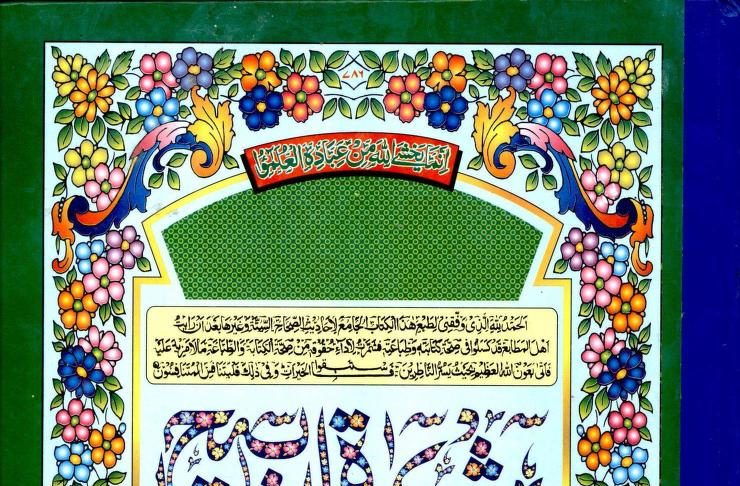 ٧٨٦
اِنَّمَا يَخْشَى اللّٰهَ مِنْ عِبَادِهِ الْعُلَمٰٓؤُا
الحمد لله الذي وفقني لطبع هذا الكتاب الجامع لاحاديث الصحاح الستة وغيرها بعد ان رايت
اهل المطابع قد كسلوا في صحة كتابته وطباعته فشمرت لاداء حقوقه من صحة الكتابة والطباعة مالا مزيد عليه
فاتى بعون الله العظيم بحيث يسر الناظرين فاستبقوا الخيرات وفي ذلك فليتنافس المتنافسون